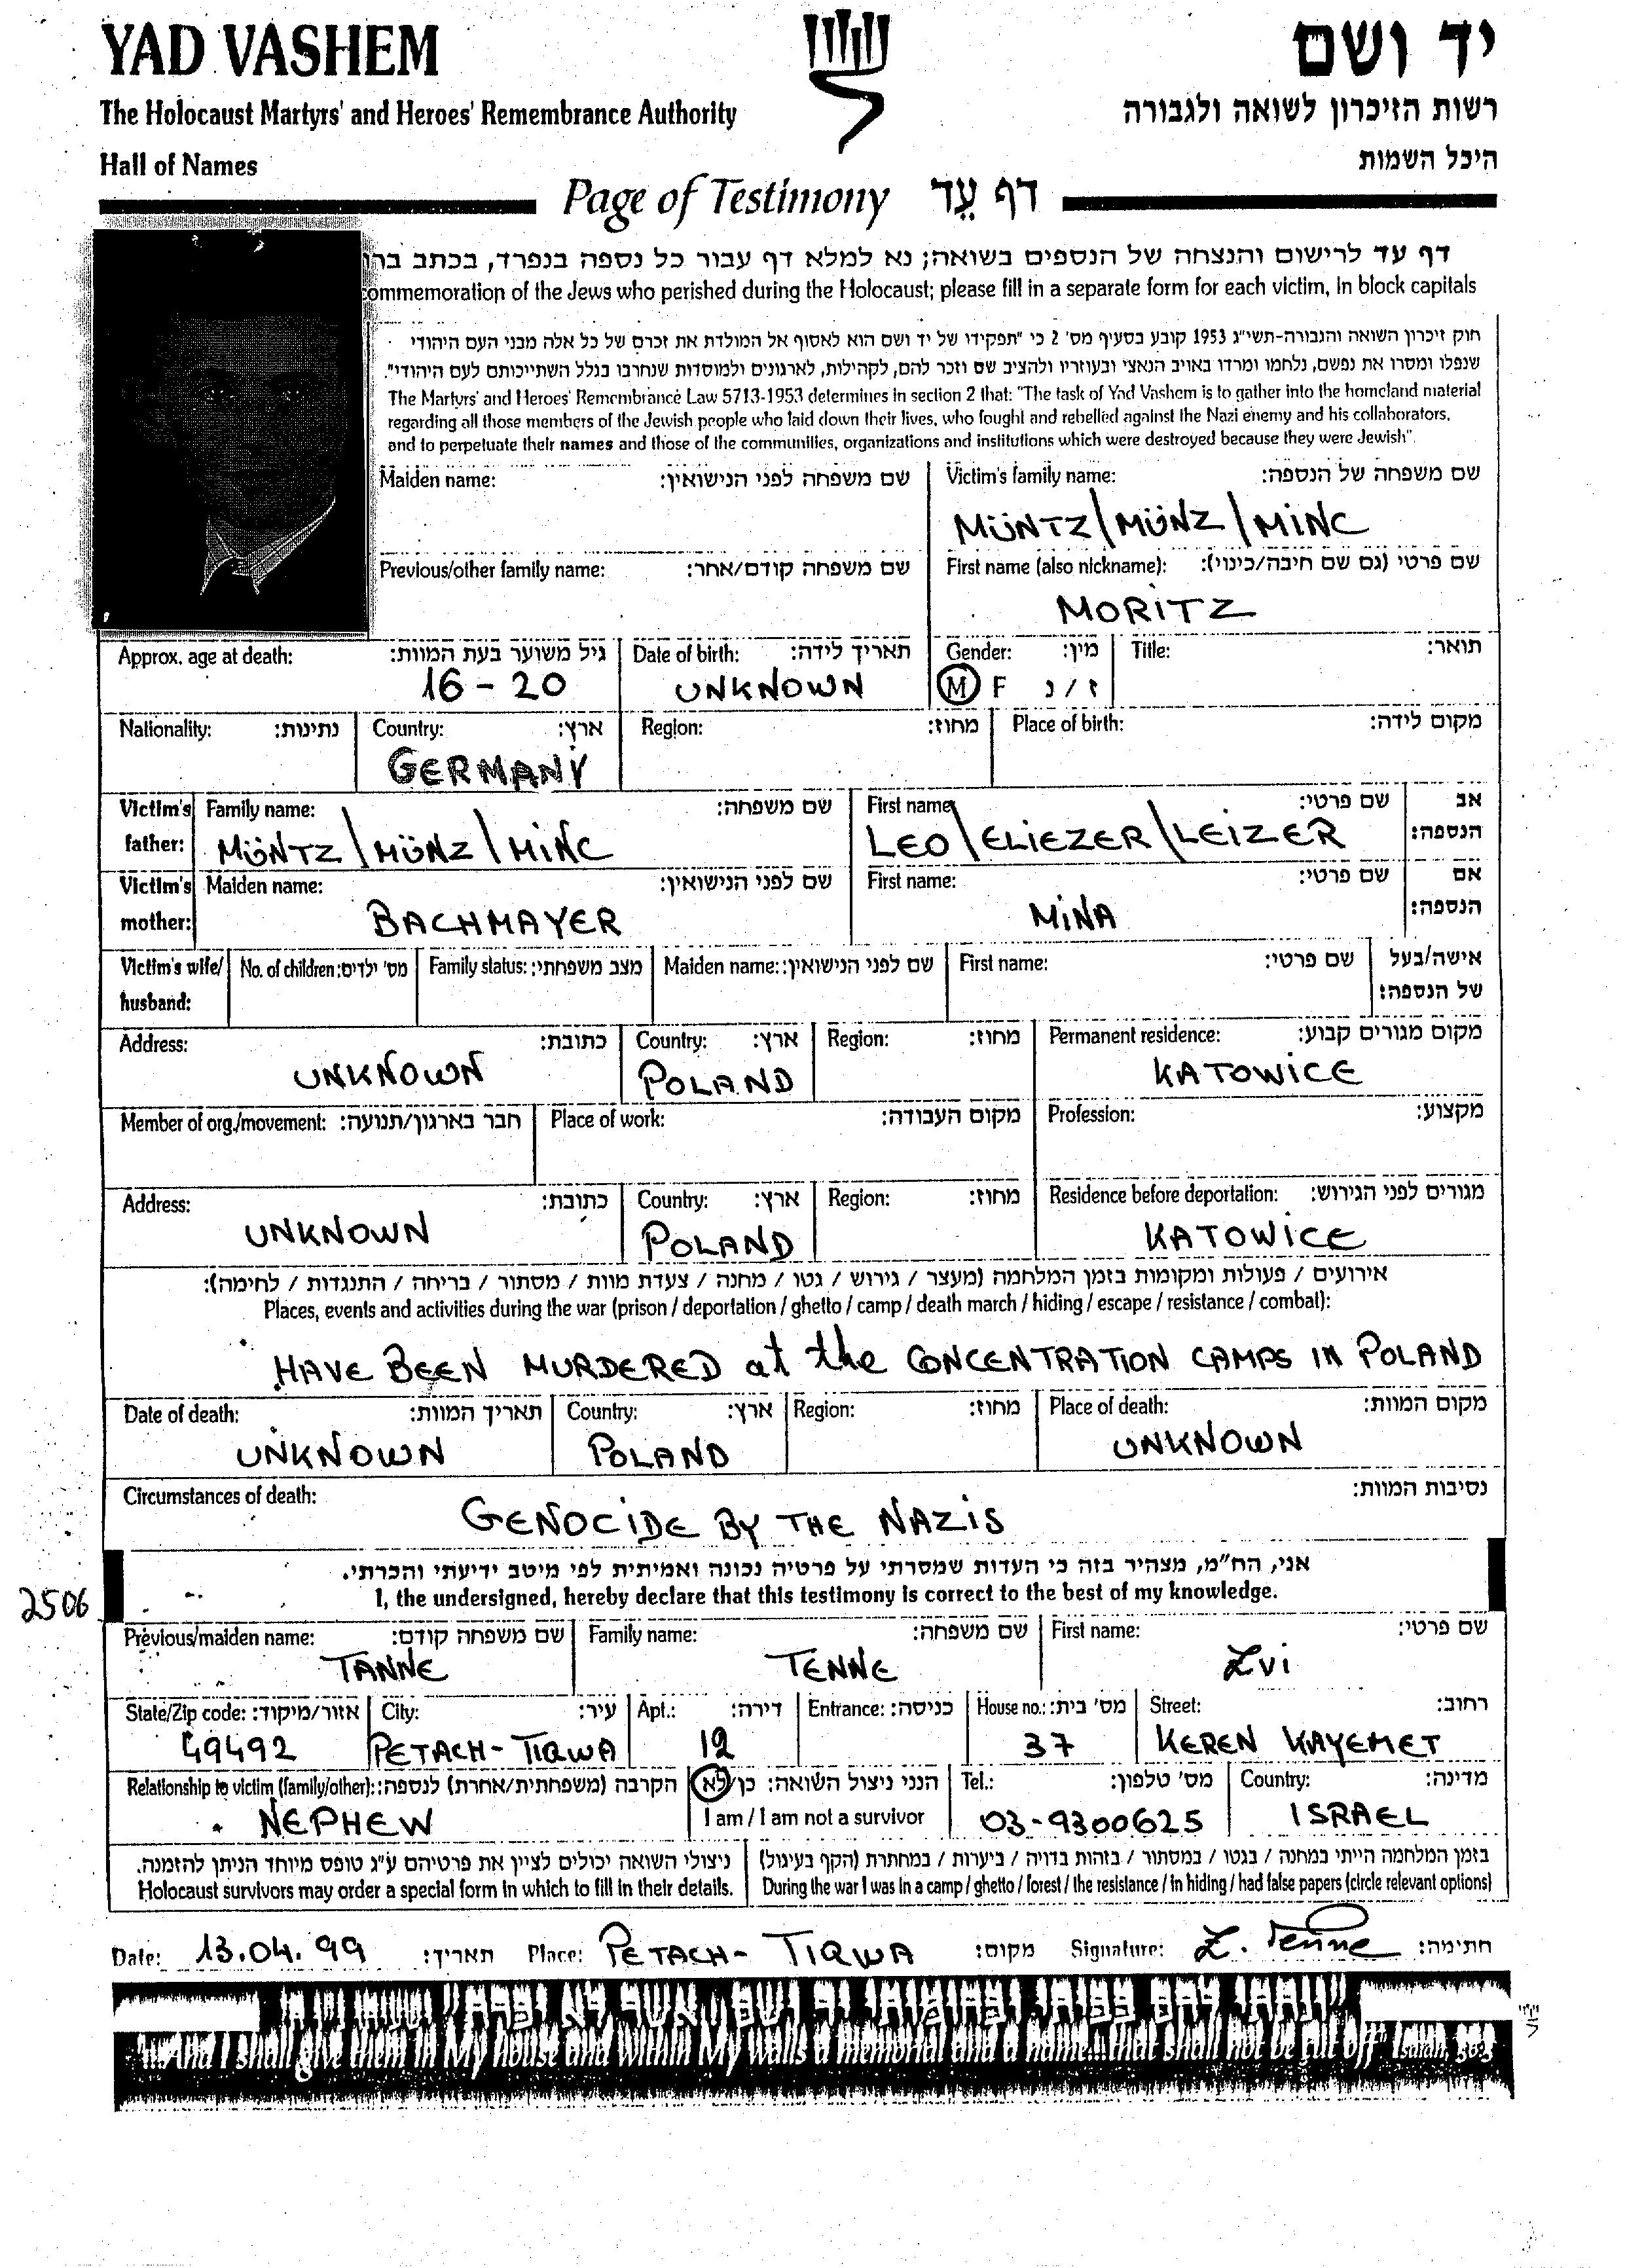 YAD VASHEM
יד ושם
The Holocaust Martyrs' and Heroes' Remembrance Authority
רשות הזיכרון לשואה ולגבורה
Hall of Names
היכל השמות
Page of Testimony דף עד
דף עד לרישום והנצחה של הנספים בשואה; נא למלא דף עבור כל נספה בנפרד, בכתב
ommemoration of the Jews who perished during the Holocaust; please fill in a separate form for each victim, in block capitals
חוק זיכרון השואה והגבורה-תשי"ג 1953 קובע בסעיף מס' 2 כי "תפקידו של יד ושם הוא לאסוף אל המולדת את זכרם של כל אלה מבני העם היהודי
שנפלו ומסרו את נפשם, נלחמו ומרדו באויב הנאצי ובעוזריו ולהציב שם וזכר להם, לקהילות, לארגונים ולמוסדות שנחרבו בגלל השתייכותם לעם היהודי".
The Martyrs' and Heroes' Remembrance Law 5713-1953 determines in section 2 that: "The task of Yad Vashem is to gather into the homeland material
regarding all those members of the Jewish people who laid down their lives, who fought and rebelled against the Nazi enemy and his collaborators,
and to perpetuate their names and those of the communities, organizations and institutions which were destroyed because they were Jewish".
Maiden name: שם משפחה לפני הנישואין: Victim's family name: שם משפחה של הנספה:
MÜNTZ/MÜNZ/MINC
Previous/other family name: שם משפחה קודם/אחר: First name (also nickname): שם פרטי (גם שם חיבה/כינוי):
MORITZ
Approx. age at death: גיל משוער בעת המוות: Date of birth: תאריך לידה: Gender: מין: Title: תואר:
16-20 UNKNOWN M F ז / נ
Nationality: נתינות: Country: ארץ: Region: מחוז: Place of birth: מקום לידה:
GERMANY
Victim's father: Family name: שם משפחה: First name שם פרטי: אב הנספה:
MÜNTZ/MÜNZ/MINC LEO/ELIEZER/LEIZER
Victim's mother: Maiden name: שם לפני הנישואין: First name: שם פרטי: אם הנספה:
BACHMAYER MINA
Victim's wife/husband: No. of children: מס' ילדים: Family status: מצב משפחתי: Maiden name: שם לפני הנישואין: First name: שם פרטי: אישה/בעל של הנספה:
Address: כתובת: Country: ארץ: Region: מחוז: Permanent residence: מקום מגורים קבוע:
UNKNOWN POLAND KATOWICE
Member of org./movement: חבר בארגון/תנועה: Place of work: מקום העבודה: Profession: מקצוע:
Address: כתובת: Country: ארץ: Region: מחוז: Residence before deportation: מגורים לפני הגירוש:
UNKNOWN POLAND KATOWICE
אירועים / פעולות ומקומות בזמן המלחמה (מעצר / גירוש / גטו / מחנה / צעדת מוות / מסתור / בריחה / התנגדות / לחימה):
Places, events and activities during the war (prison / deportation / ghetto / camp / death march / hiding / escape / resistance / combat):
HAVE BEEN MURDERED at the CONCENTRATION CAMPS IN POLAND
Date of death: תאריך המוות: Country: ארץ: Region: מחוז: Place of death: מקום המוות:
UNKNOWN POLAND UNKNOWN
Circumstances of death: נסיבות המוות:
GENOCIDE BY THE NAZIS
אני, הח"מ, מצהיר בזה כי העדות שמסרתי על פרטיה נכונה ואמיתית לפי מיטב ידיעתי והכרתי.
I, the undersigned, hereby declare that this testimony is correct to the best of my knowledge.
2506
Previous/maiden name: שם משפחה קודם: Family name: שם משפחה: First name: שם פרטי:
TANNE TENNE Zvi
State/Zip code: אזור/מיקוד: City: עיר: Apt.: דירה: Entrance: כניסה: House no.: מס' בית: Street: רחוב:
49492 PETACH-TIQWA 12 37 KEREN KAYEMET
Relationship to victim (family/other): הקרבה (משפחתית/אחרת) לנספה: הנני ניצול השואה: כן/לא Tel.: מס' טלפון: Country: מדינה:
NEPHEW I am / I am not a survivor 03-9300625 ISRAEL
ניצולי השואה יכולים לציין את פרטיהם ע"ג טופס מיוחד הניתן להזמנה. בזמן המלחמה הייתי במחנה / בגטו / במסתור / בזהות בדויה / ביערות / במחתרת (הקף בעיגול)
Holocaust survivors may order a special form in which to fill in their details. During the war I was in a camp / ghetto / forest / the resistance / in hiding / had false papers (circle relevant options)
Date: 13.04.99 תאריך: Place: PETACH-TIQWA מקום: Signature: Z. Tenne חתימה:
"...And I shall give them in My house and within My walls a memorial and a name...that shall not be cut off" Isaiah, 56:5